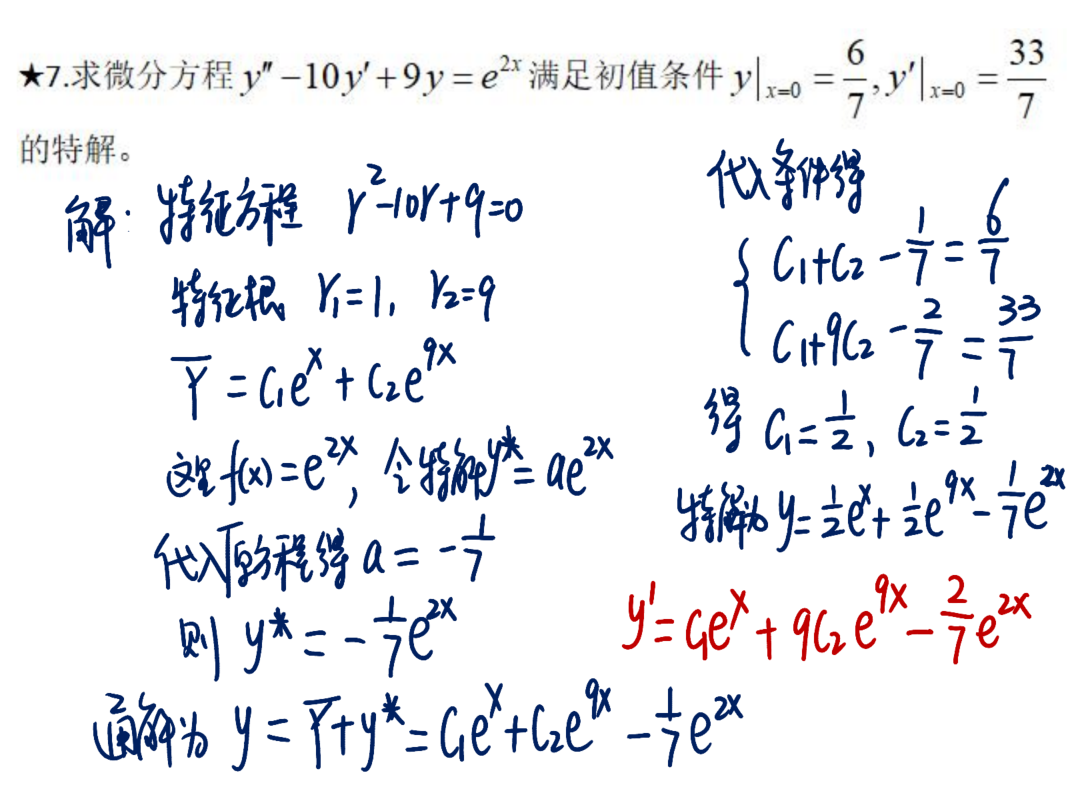 ★7.求微分方程 y″−10y′+9y=e^{2x} 满足初值条件 y|_{x=0}=6/7, y′|_{x=0}=33/7
的特解。
解: 特征方程 r²-10r+9=0
特征根 r₁=1, r₂=9
Y̅=C₁e^x+C₂e^{9x}
这里f(x)=e^{2x}, 令特解y*=ae^{2x}
代入原方程得 a=-1/7
则 y*=-1/7e^{2x}
通解为 y=Y̅+y*=C₁e^x+C₂e^{9x}-1/7e^{2x}
代入条件得
{ C₁+C₂-1/7=6/7
C₁+9C₂-2/7=33/7
得 C₁=1/2, C₂=1/2
特解为 y=1/2e^x+1/2e^{9x}-1/7e^{2x}
y′=C₁e^x+9C₂e^{9x}-2/7e^{2x}